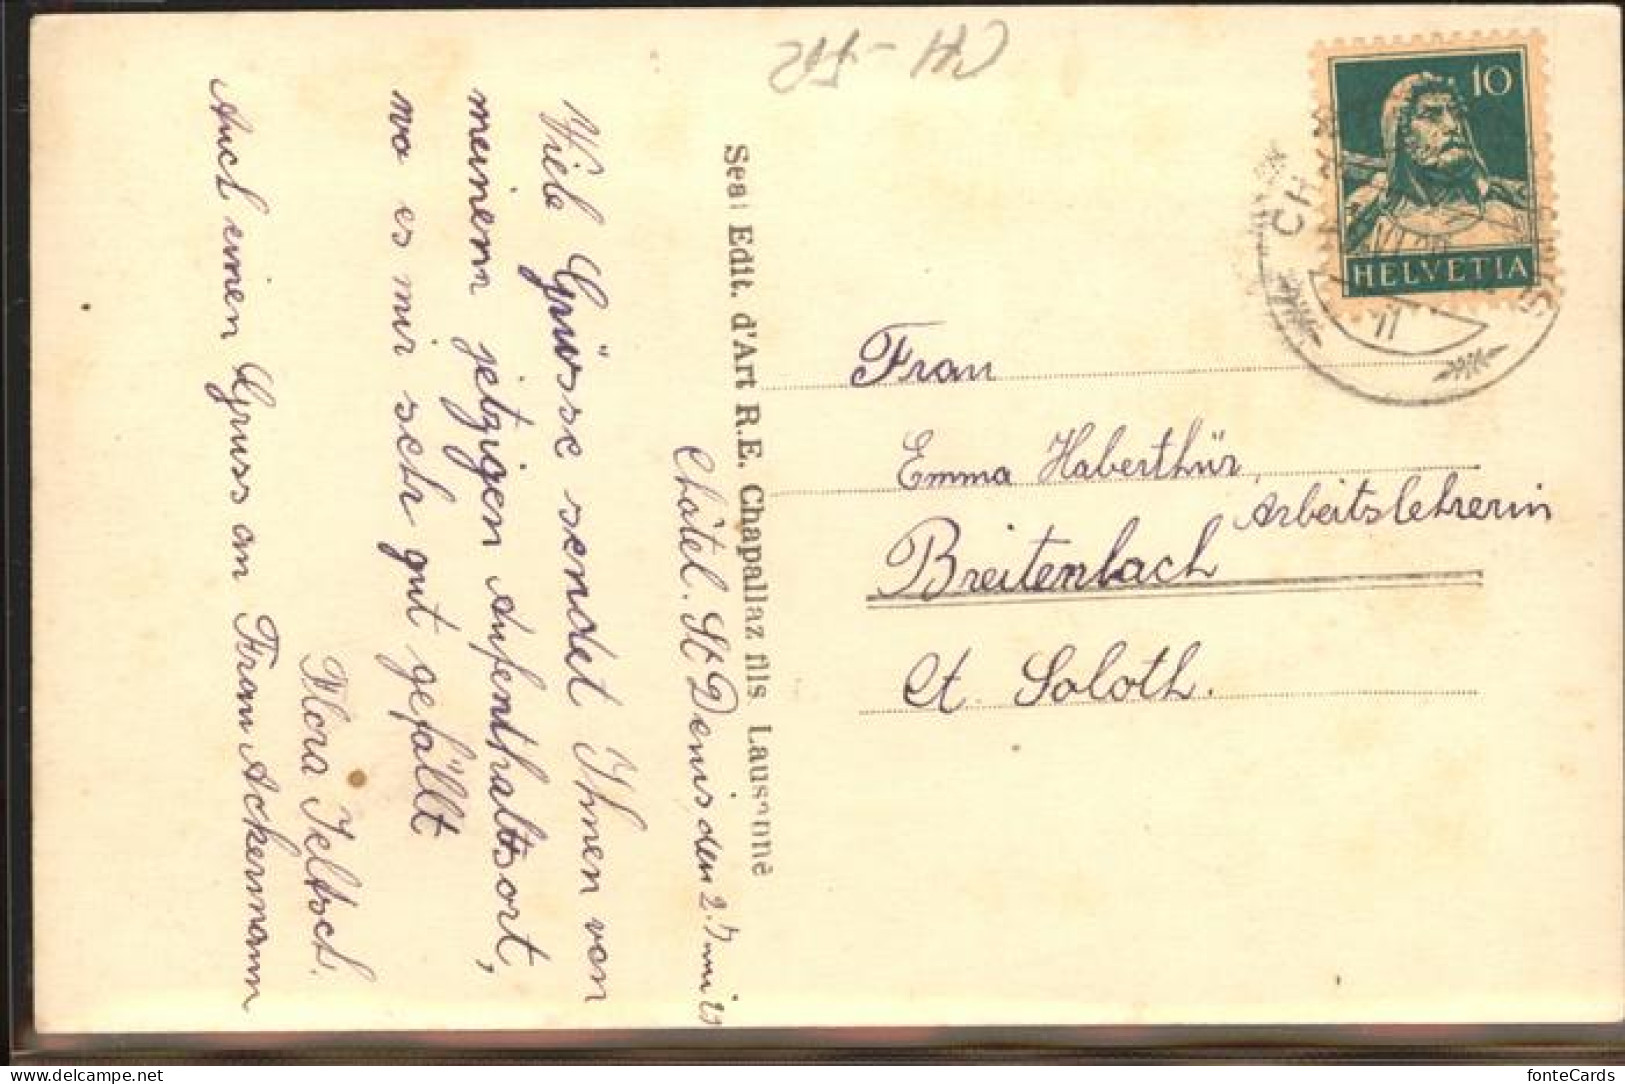 CH-FR
10
HELVETIA
CH
Châtel. St Denis, den 2. Juni 29
Viele Grüsse sendet Ihnen von
meinem jetzigen Aufenthaltsort,
wo es mir sehr gut gefällt
Flora Jeltsch.
Auch einen Gruss an Frau Ackermann
Seal Edit. d'Art R.E. Chapallaz fils. Lausanne
Frau
Emma Haberthür,
Arbeitslehrerin
Breitenbach
Ct. Soloth.
www.delcampe.net
fonteCards